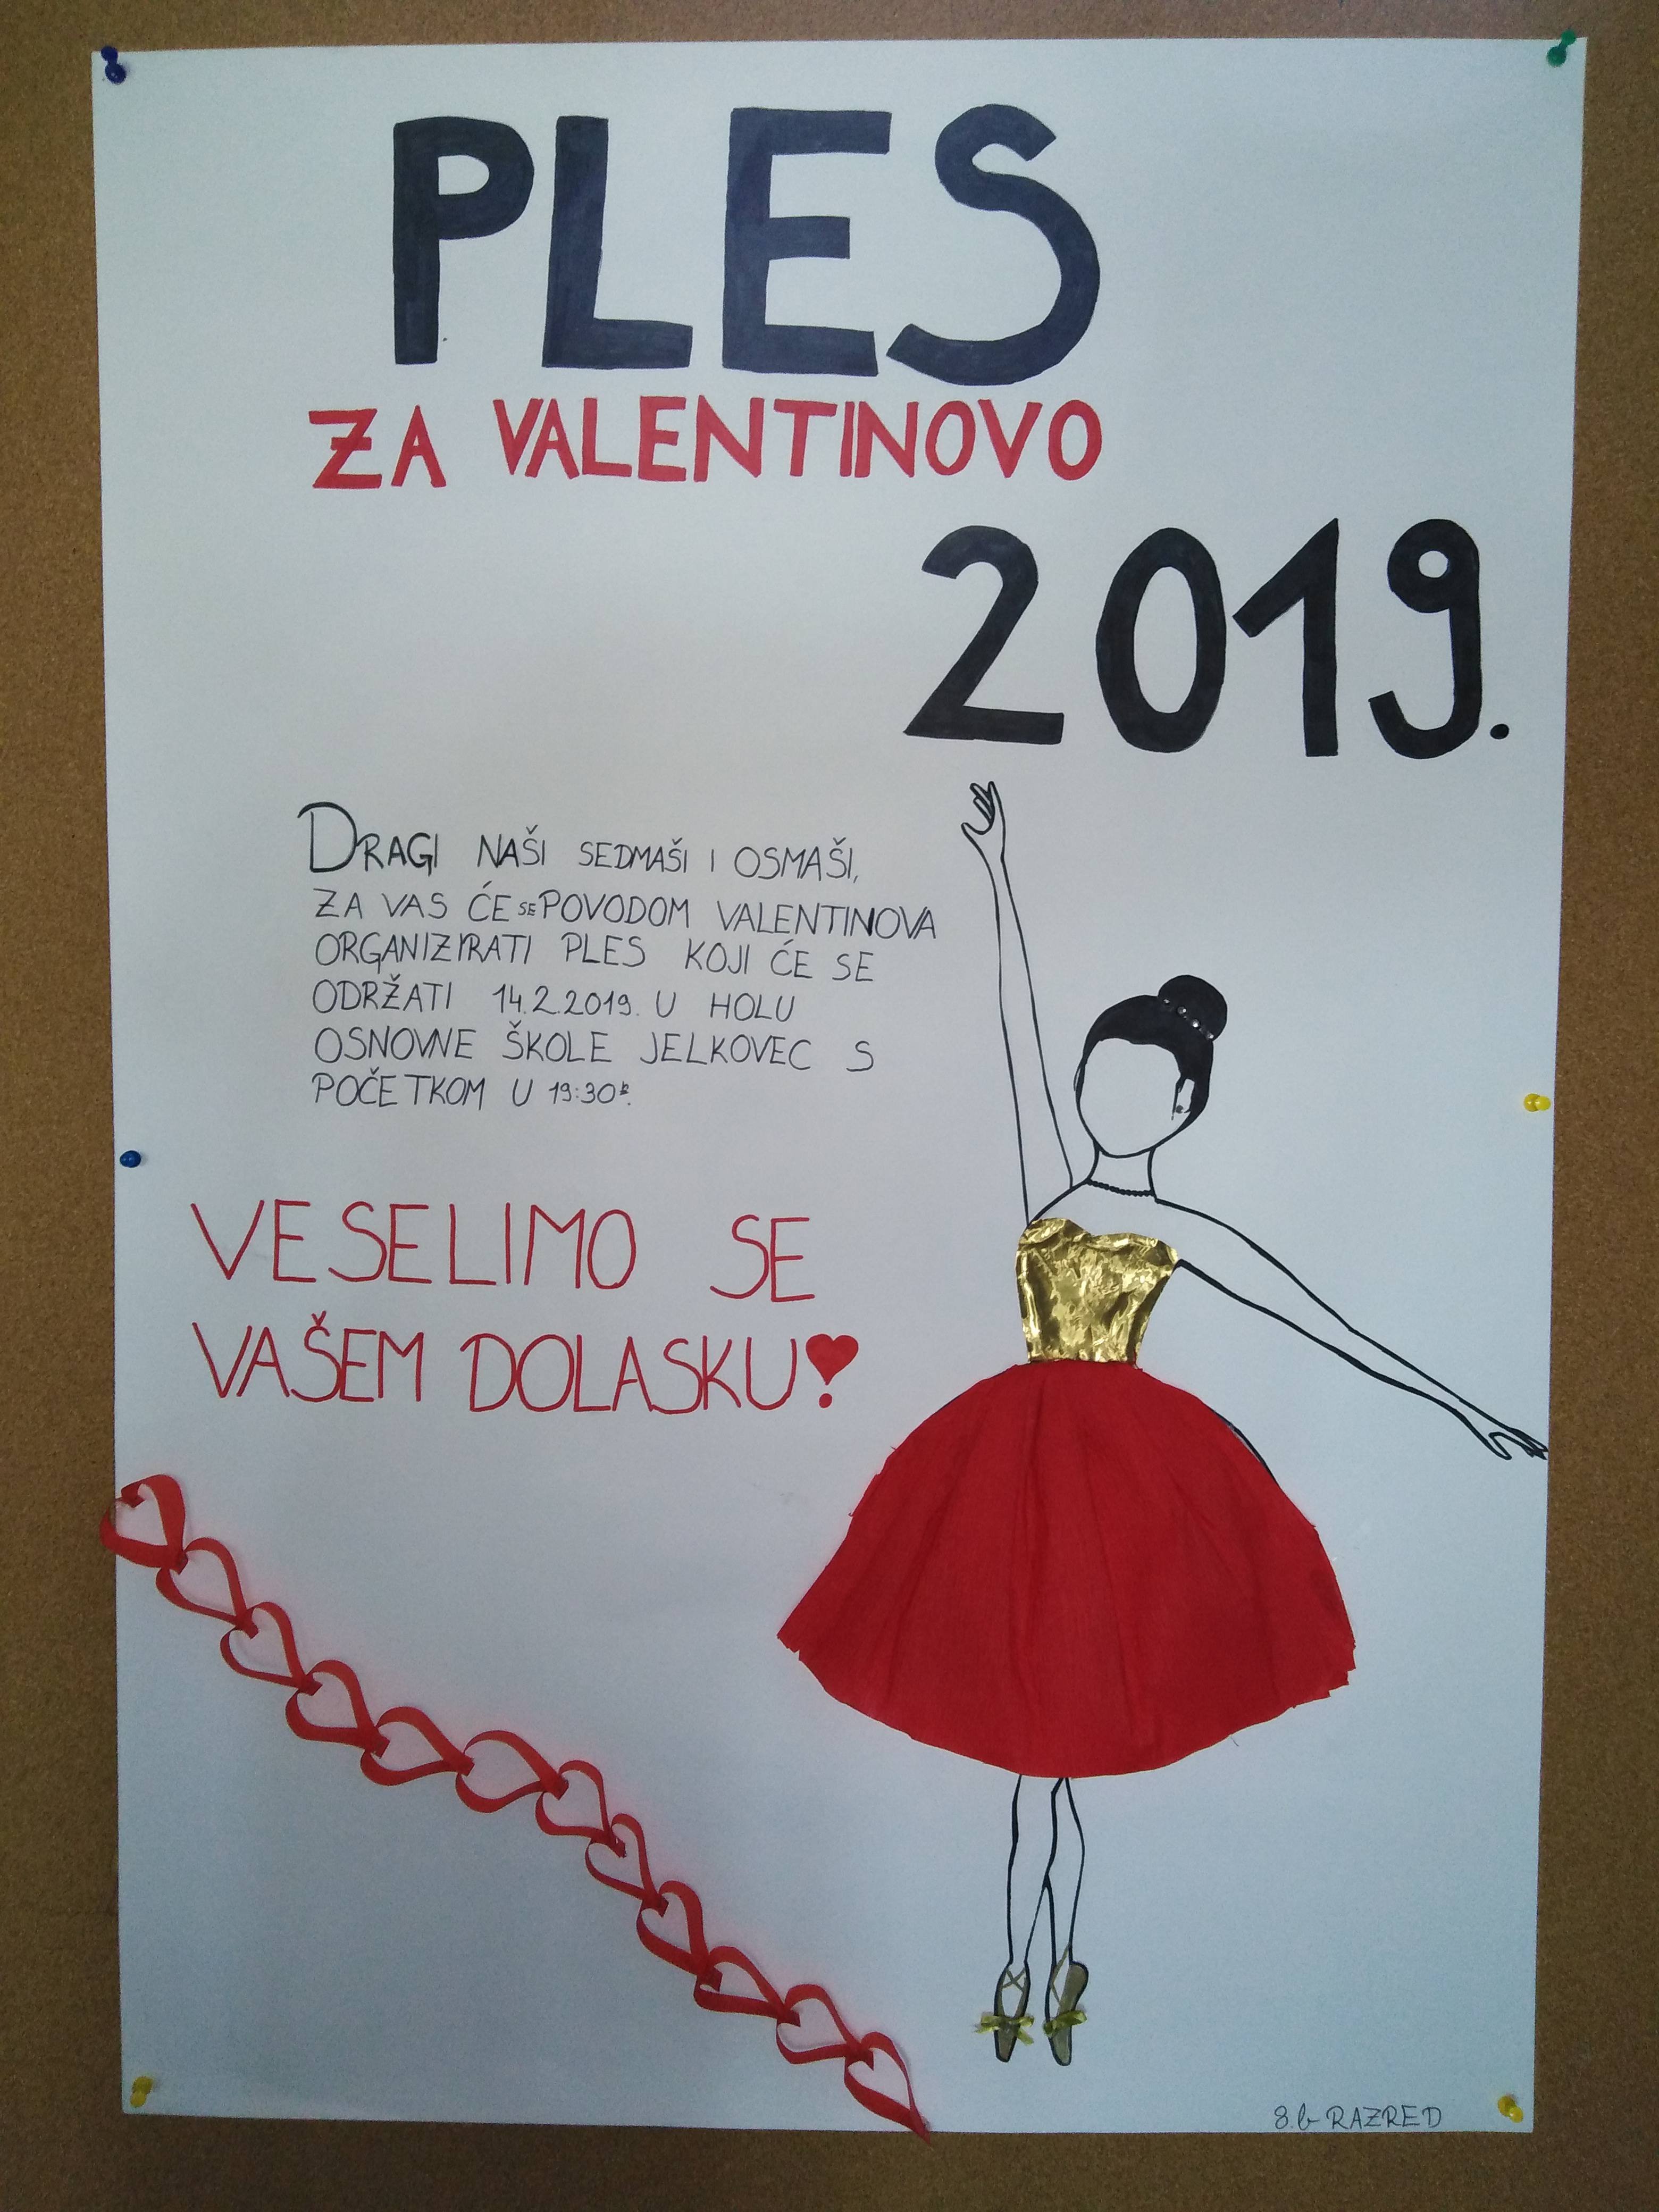 PLES
ZA VALENTINOVO
2019.
DRAGI NAŠI SEDMAŠI I OSMAŠI,
ZA VAS ĆE SE POVODOM VALENTINOVA
ORGANIZIRATI PLES KOJI ĆE SE
ODRŽATI 14.2.2019. U HOLU
OSNOVNE ŠKOLE JELKOVEC S
POČETKOM U 19:30h.
VESELIMO SE
VAŠEM DOLASKU!
8.b RAZRED